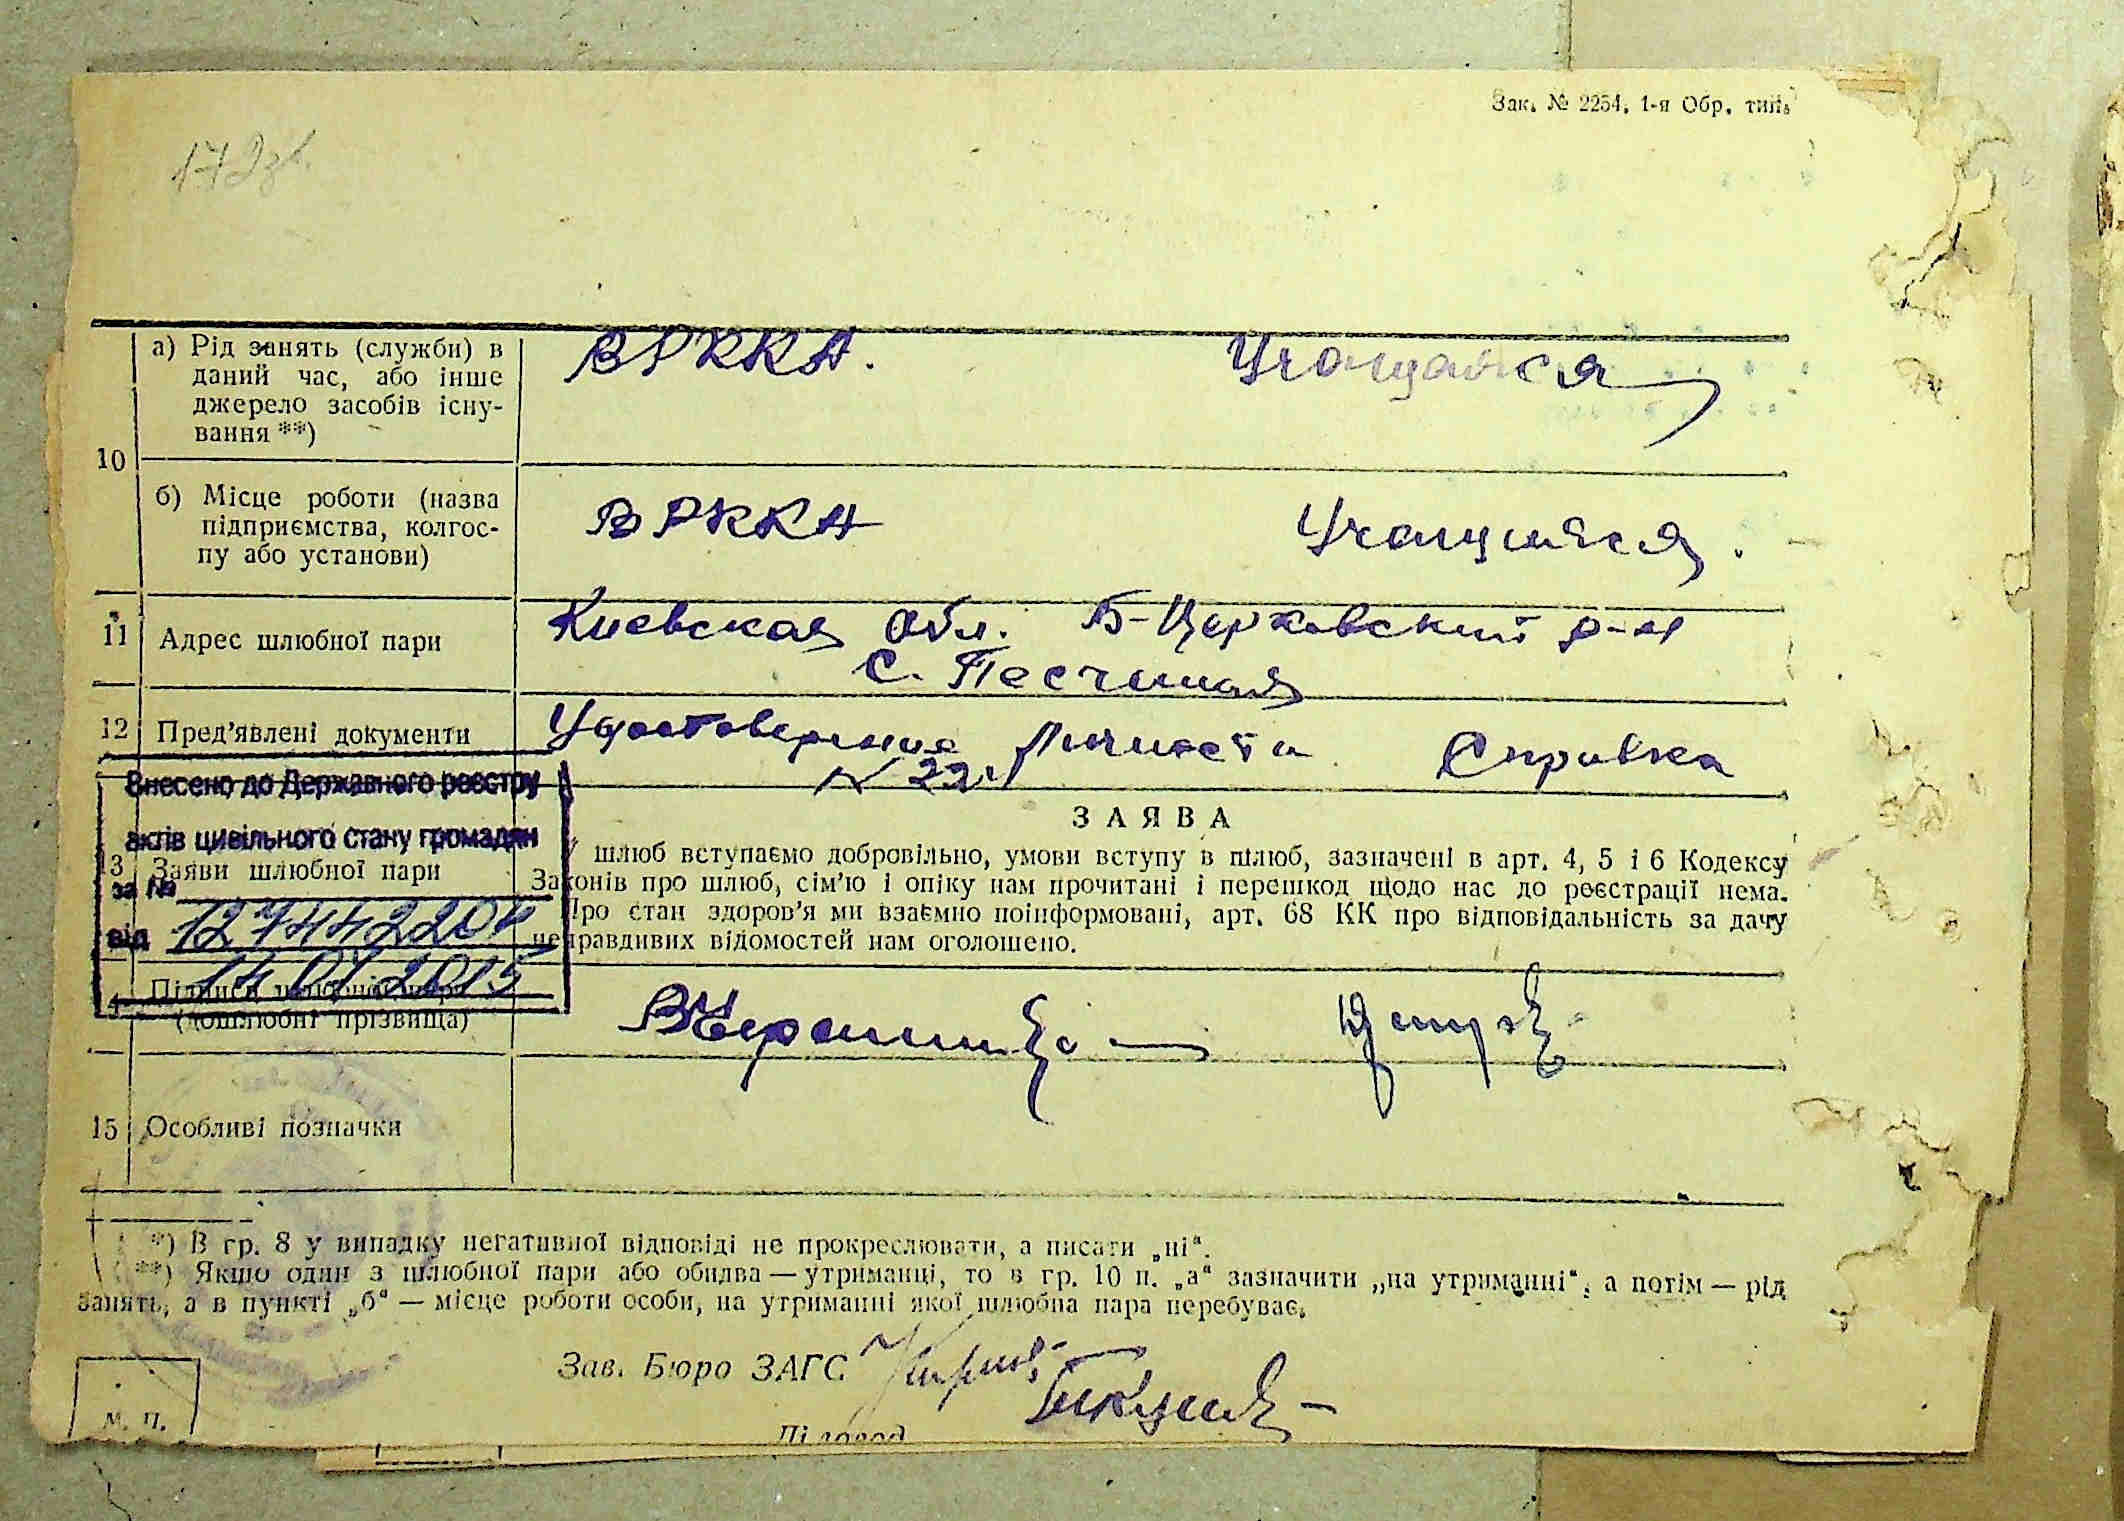 Зак. № 2254, 1-я Обр. тип.
172зв.
10
а) Рід занять (служби) в
даний час, або інше
джерело засобів існу-
вання **)
ВРККА. Учащаяся
б) Місце роботи (назва
підприємства, колгос-
пу або установи)
ВРККА Учащияся.
11 Адрес шлюбної пари
Киевская обл. Б-Церковский р-н
с. Песчиная
12 Пред’явлені документи
Удостоверения Личности Справка
N 22
Внесено до Державного реєстру
актів цивільного стану громадян
за №
від 12744220
14 07 2015
ЗАЯВА
13 Заяви шлюбної пари
У шлюб вступаємо добровільно, умови вступу в шлюб, зазначені в арт. 4, 5 і 6 Кодексу
Законів про шлюб, сім’ю і опіку нам прочитані і перешкод щодо нас до реєстрації нема.
Про стан здоров’я ми взаємно поінформовані, арт. 68 КК про відповідальність за дачу
неправдивих відомостей нам оголошено.
Підписи шлюбної пари
(дошлюбні прізвища)
15 Особливі позначки
*) В гр. 8 у випадку негативної відповіді не прокреслювати, а писати „ні“.
**) Якщо один з шлюбної пари або обидва — утриманці, то в гр. 10 п. „а“ зазначити „на утриманні“, а потім — рід
занять, а в пункті „б“ — місце роботи особи, на утриманні якої шлюбна пара перебуває.
Зав. Бюро ЗАГС
Діловод
М. П.